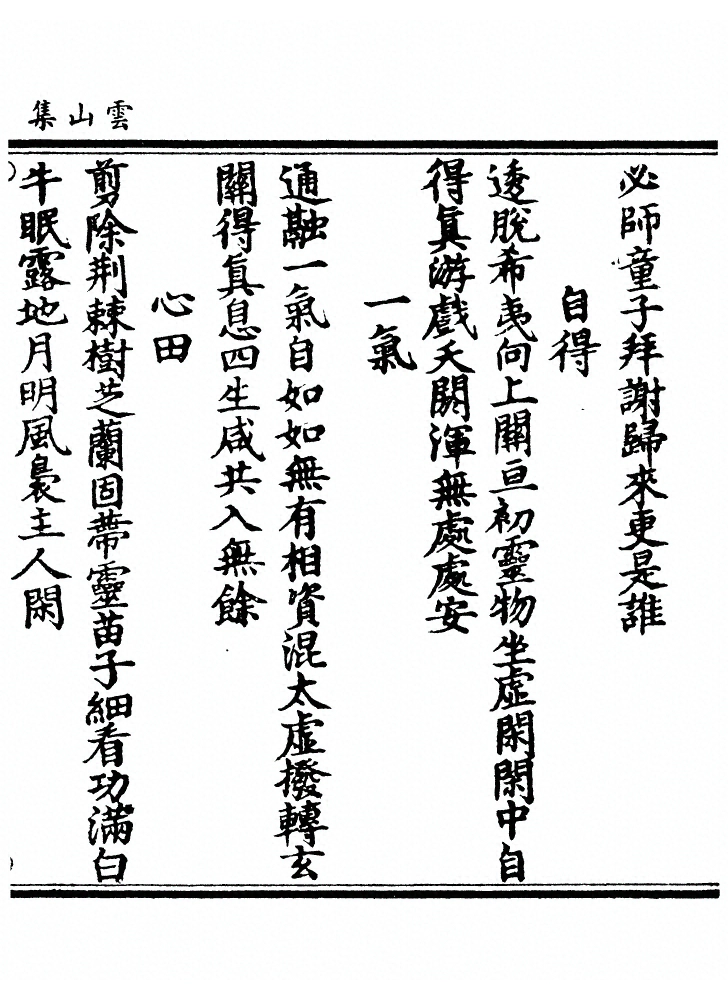 雲山集
必師童子拜謝歸來更是誰
自得
透脫希夷向上關亘初靈物坐虛閑閑中自
得眞游戲天闕渾無處處安
一氣
通融一氣自如如無有相資混太虛撥轉玄
關得眞息四生咸共入無餘
心田
剪除荆棘樹芝蘭固蔕靈苗子細看功滿白
牛眠露地月明風裊主人閑